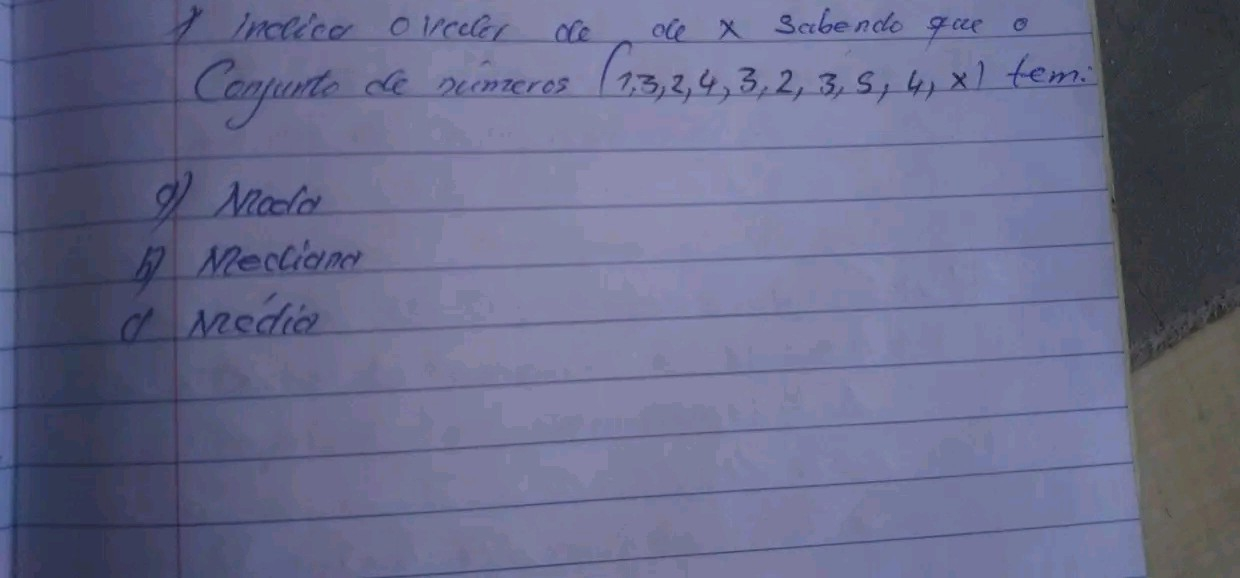 1) indica o valor de de x sabendo que o
Conjunto de números (1,3,2,4,3,2,3,5,4,x) tem:
a) Moda
b) Mediana
c) Média